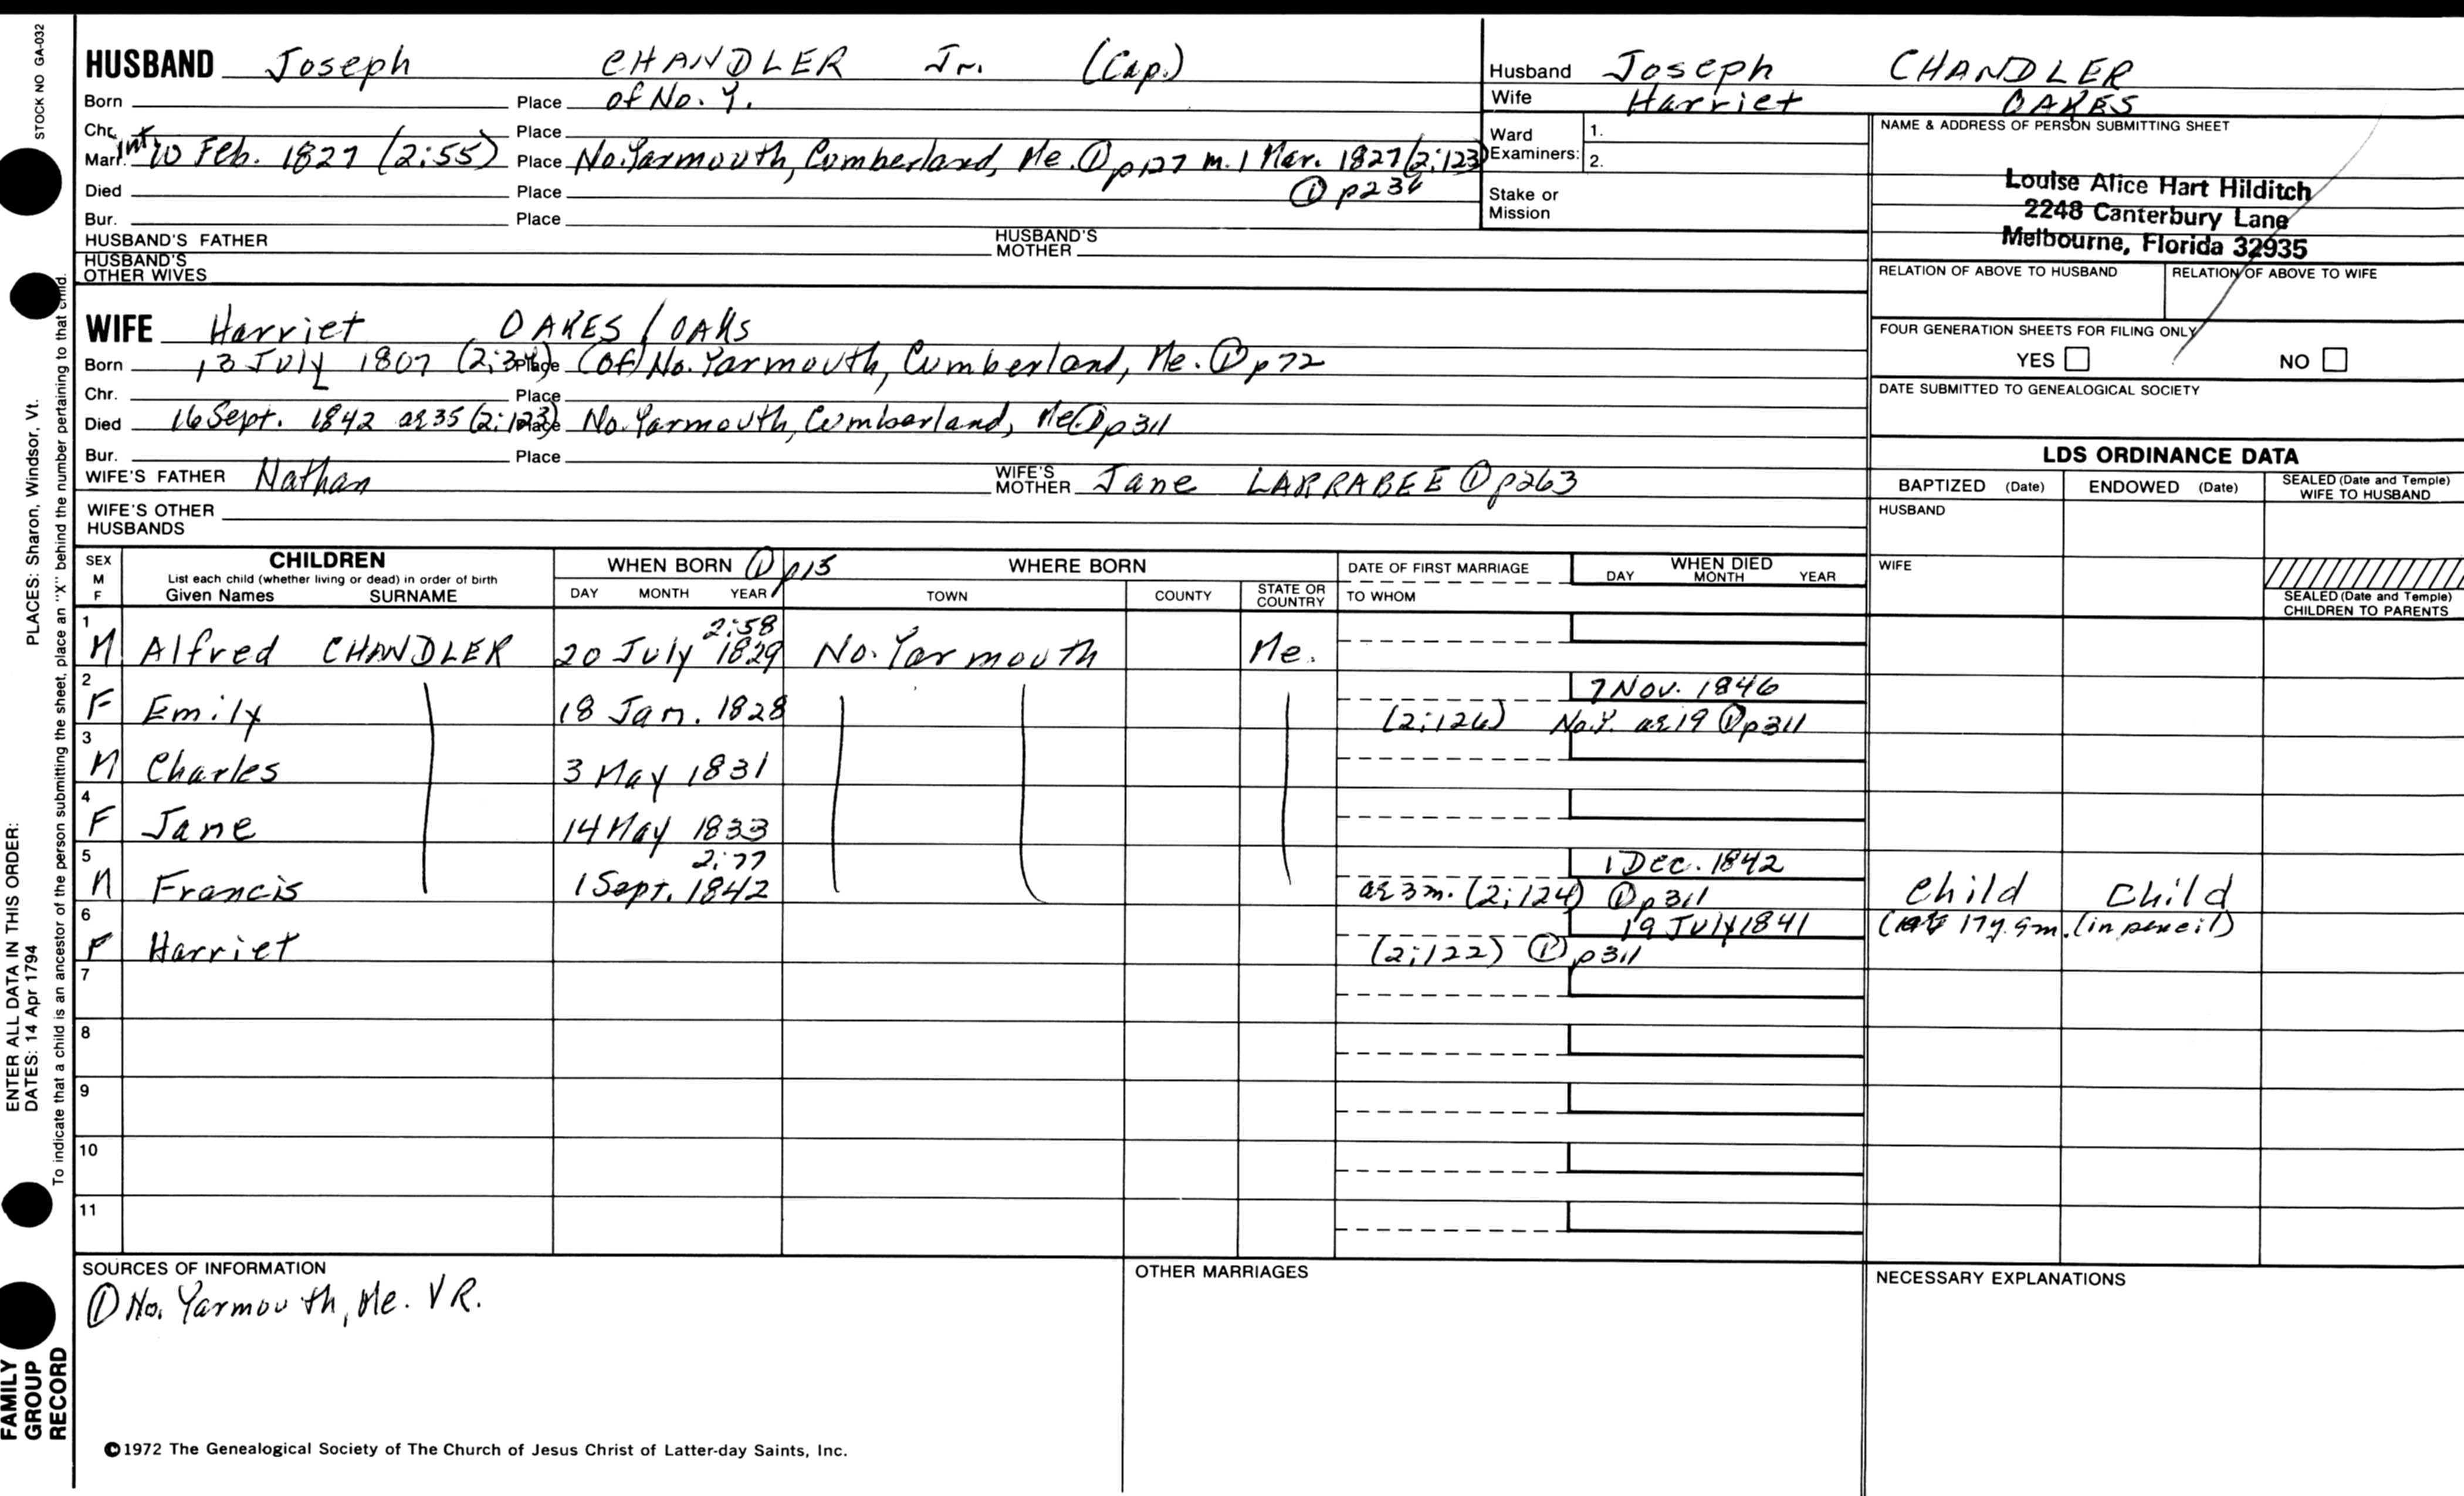 STOCK NO GA-032
HUSBAND Joseph CHANDLER Jr. (Cap.)
Born Place of No. Y.
Chr. Place
Marr. Int. 10 Feb. 1827 (2:55) Place No. Yarmouth, Cumberland, Me. ① p127 m. 1 Mar. 1827 (2:123)
Died Place ① p236
Bur. Place
HUSBAND'S FATHER HUSBAND'S MOTHER
HUSBAND'S OTHER WIVES
Husband Joseph CHANDLER
Wife Harriet OAKES
Ward Examiners: 1.
2.
Stake or Mission
NAME & ADDRESS OF PERSON SUBMITTING SHEET
Louise Alice Hart Hilditch
2248 Canterbury Lane
Melbourne, Florida 32935
RELATION OF ABOVE TO HUSBAND RELATION OF ABOVE TO WIFE
FOUR GENERATION SHEETS FOR FILING ONLY
YES NO
DATE SUBMITTED TO GENEALOGICAL SOCIETY
WIFE Harriet OAKES / OAKs
Born 13 July 1807 (2:34) Place (of) No. Yarmouth, Cumberland, Me. ① p72
Chr. Place
Died 16 Sept. 1842 ae 35 (2:123) Place No. Yarmouth, Cumberland, Me. ① p311
Bur. Place
WIFE'S FATHER Nathan WIFE'S MOTHER Jane LARRABEE ① p263
WIFE'S OTHER HUSBANDS
LDS ORDINANCE DATA
BAPTIZED (Date) ENDOWED (Date) SEALED (Date and Temple) WIFE TO HUSBAND
HUSBAND
WIFE
SEALED (Date and Temple) CHILDREN TO PARENTS
SEX M F
CHILDREN
List each child (whether living or dead) in order of birth
Given Names SURNAME
WHEN BORN ① p15
DAY MONTH YEAR
WHERE BORN
TOWN COUNTY STATE OR COUNTRY
DATE OF FIRST MARRIAGE
TO WHOM
WHEN DIED
DAY MONTH YEAR
1 M Alfred CHANDLER 2:58 20 July 1829 No. Yarmouth Me.
2 F Emily 18 Jan. 1828 7 Nov. 1846
(2:126) No.Y. ae 19 ① p311
3 M Charles 3 May 1831
4 F Jane 14 May 1833
5 M Francis 2:77 1 Sept. 1842 1 Dec. 1842
ae 3 m. (2:124) ① p311 Child Child
6 F Harriet 19 July 1841 17y. 9m. (in pencil)
(2:122) ① p311
7
8
9
10
11
SOURCES OF INFORMATION
① No. Yarmouth, Me. VR.
OTHER MARRIAGES
NECESSARY EXPLANATIONS
©1972 The Genealogical Society of The Church of Jesus Christ of Latter-day Saints, Inc.
FAMILY GROUP RECORD
ENTER ALL DATA IN THIS ORDER:
DATES: 14 Apr 1794
PLACES: Sharon, Windsor, Vt.
To indicate that a child is an ancestor of the person submitting the sheet, place an "X" behind the number pertaining to that child.